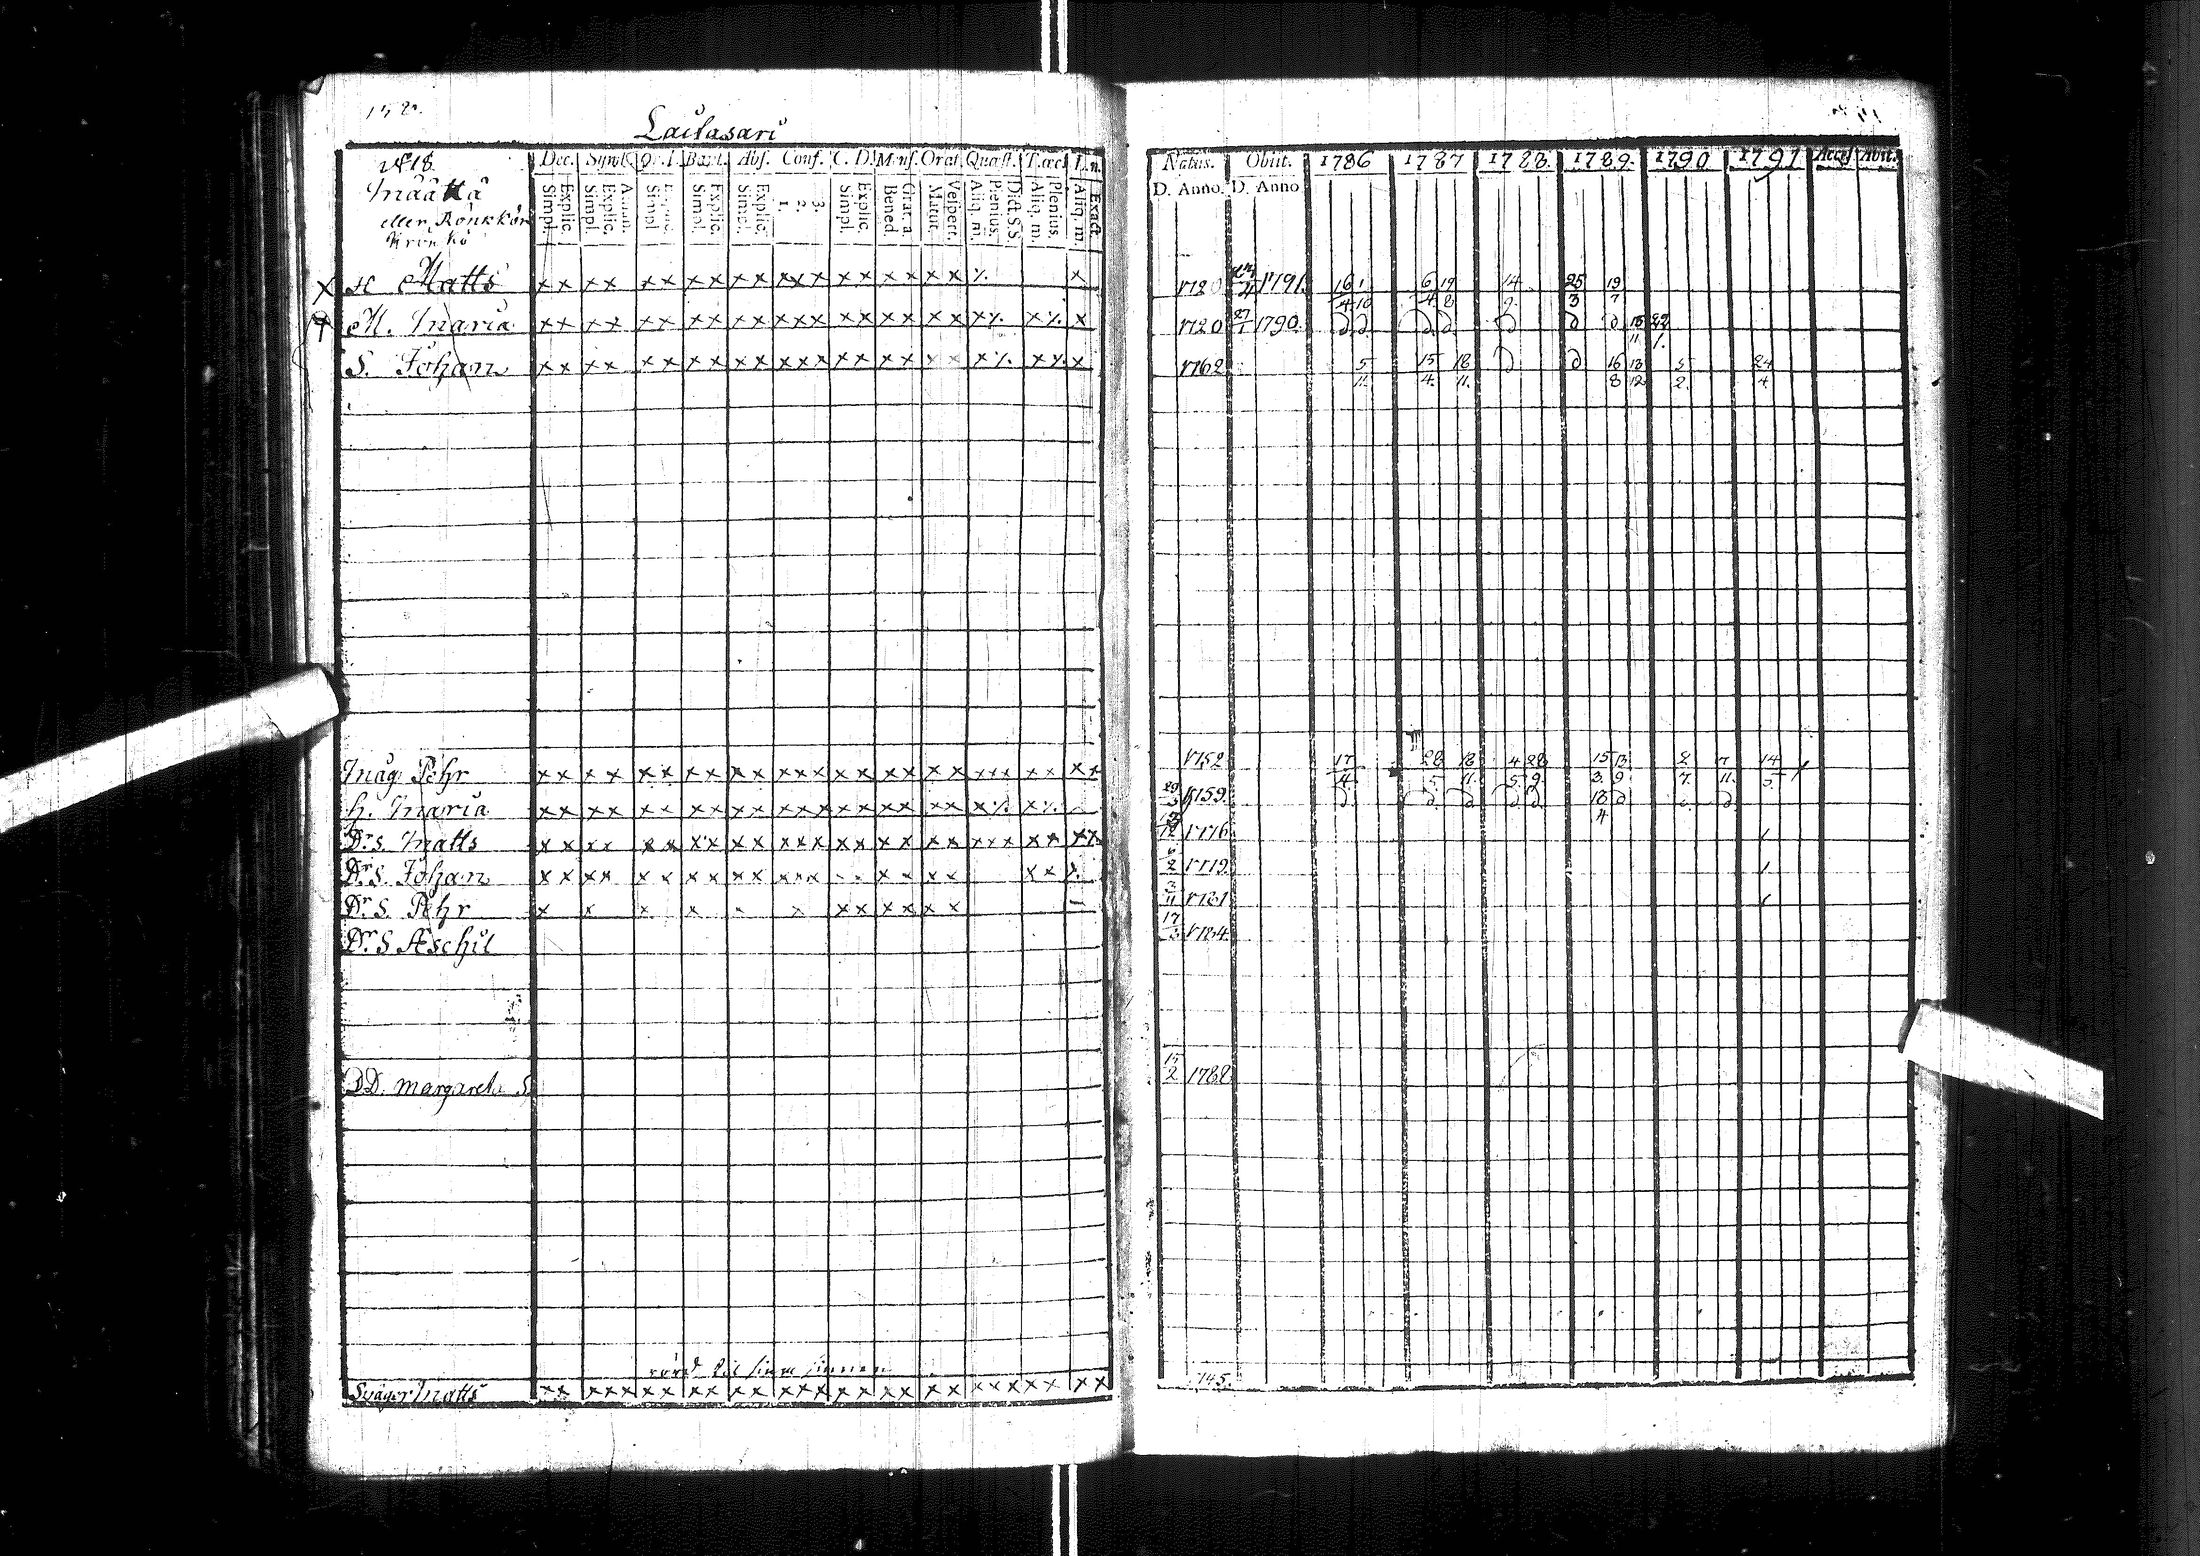 158.
Lailasari
N:18
Määttä
eller Rönkkö
Krönkö
Dec. Symb. Or. D. Bapt. Abs. Conf. C. D. Mens. Orat. Quæst. T. œc. L. n.
Simpl. Explic. Simpl. Explic. Athan. Simpl. Explic. Simpl. Explic. Simpl. Explic. 1. 2. 3. Simpl. Explic. Bened. Grat. a. Matut. Vespert. Aliq. m. Plenius. Dict. S. S. Aliq. m. Plenius. Aliq. m. Exact.
Natus. Obiit. 1786 1787 1788. 1789. 1790 1791 Access. Abiit.
D. Anno. D. Anno
Matts x x x x x x x x x x x x x x x x x x x x 1720 1791. 16/4 1/10 6/4 19/8 14/9. 25/3 19/7
H. Maria x x x x x x x x x x x x x x x x x x x x 1720 27/1 1790. 15/11 22/1.
S. Johan x x x x x x x x x x x x x x x x x x x x 1762 5/11. 15/4. 18/11. 16/8 13/12 5/2. 24/4
Måg Pehr x x x x x x x x x x x x x x x x x x x x x x x x x x x 1752 17/4. 28/5. 18/11. 4/5. 28/9. 15/3. 13/9 2/7. 7/11. 14/5
h. Maria 29/3 1759. 18/4
Dr. s. Matts 1776
Dr. S. Johan 6/2 1779.
Dr. S. Pehr 3/11 1781
Dr. S Æschil 17/3 1784.
DD. Margareta 15/2 1788
rörd til sina sinnen
Svåger Matts x x x x x x x x x x x x x x x x x x x x x x x x x x x x 1745.